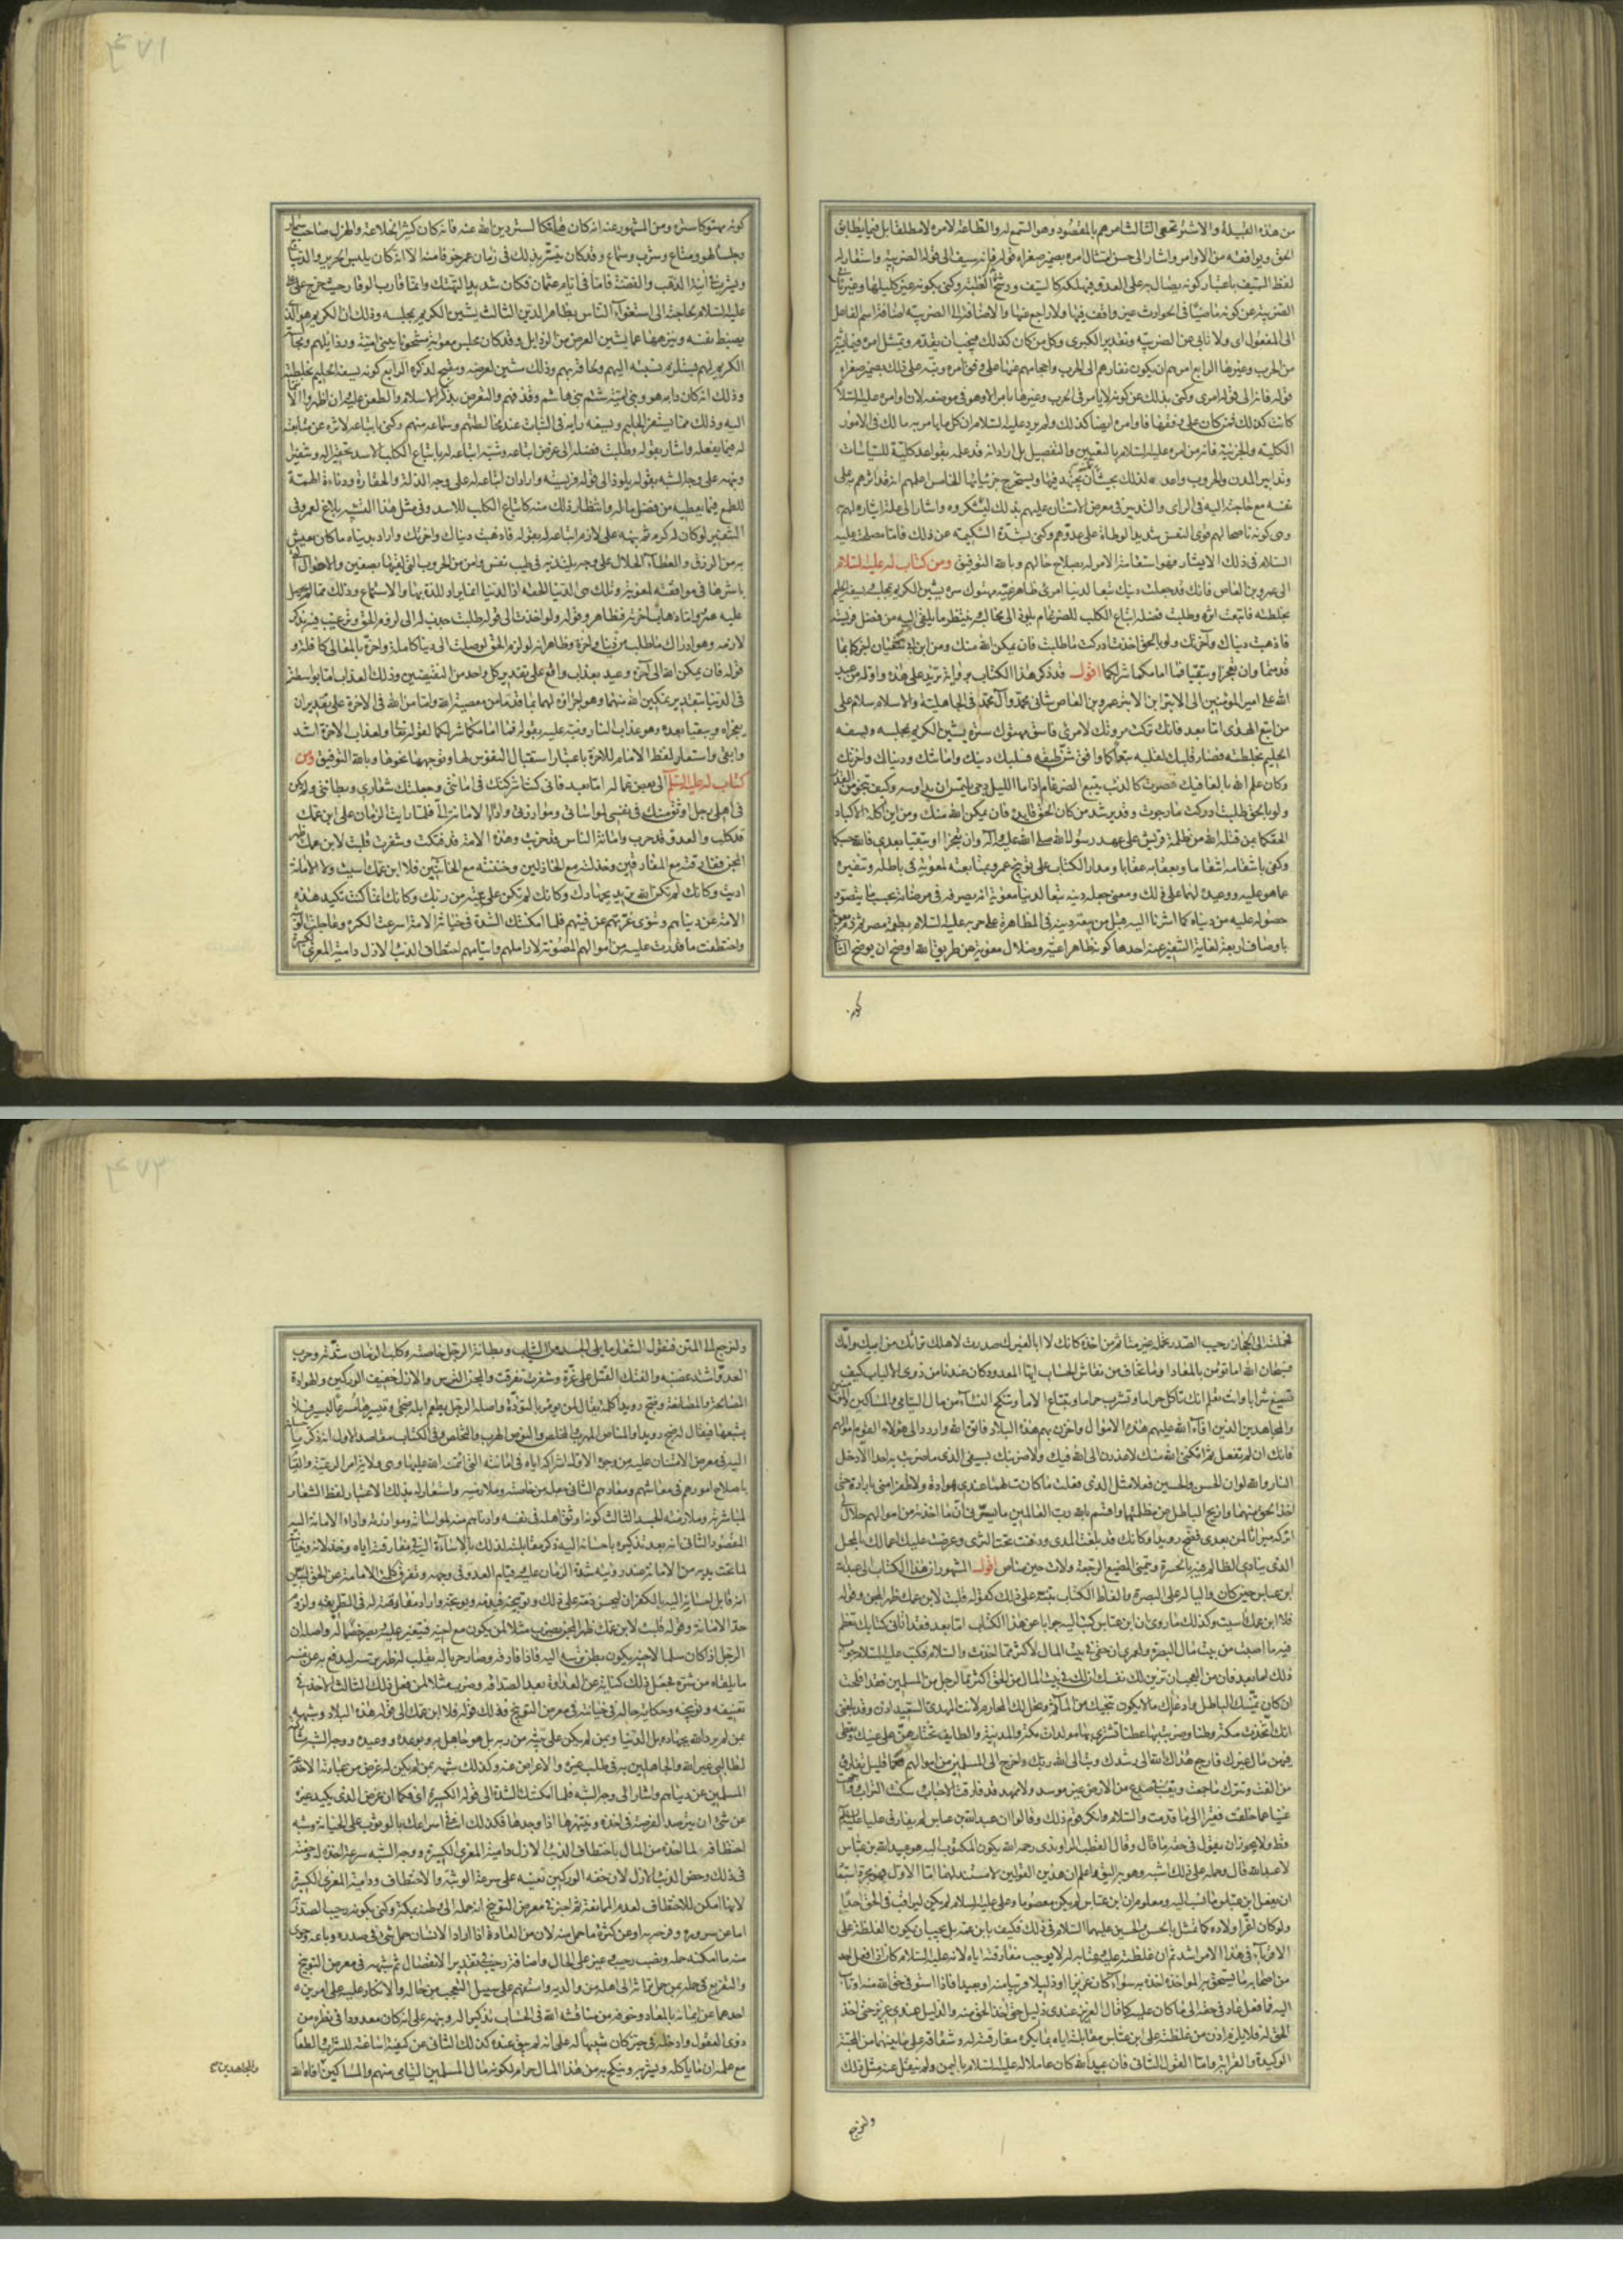 من هذه القبيلة والاشتر نخعى الثالث امرهم بالمقصود وهو السمع له والطاعة لامره لا مطلقا بل فيما يطابق
الحق ويوافقه من الاوامر واشار الى حسن امتثال امره بضمير صغراه قوله فانه سيف الى قوله الضريبة واستعار له
لفظ السيف باعتبار كونه يصال به على العدو فيهلكه كالسيف ورشح وكنى بكونه غير كليلها وغير نابى
الضريبة عن كونه ماضيا فى الحوادث غير واقف فيها ولا راجع عنها والاضافة الى الضريبة اضافة اسم الفاعل
الى المفعول اى ولا نابى عن الضريبة وتقدير الكبرى وكل من كان كذلك فيجب ان يقدم ويمتثل امره فيما يشير
من الحرب وغيرها الرابع امرهم ان يكون نفارهم الى الحرب واحجامهم عنها على وفق امره ونبه على ذلك بضمير صغراه
قوله فانه الى قوله امرى وكنى بذلك عن كونه لا يأمر فى الحرب وغيرها بامر الا وهو فى موضعه لان اوامره عليه السلام
كانت كذلك فمن كان على وفقها فاوامره ايضا كذلك ولم يرد عليه السلام ان كل ما يامر به مالك فى الامور
الكلية والجزئية فانه من امره عليه السلام بالتعيين والتفصيل بل اراد انه قد علمه بقواعد كلية للسياسات
وتدابير المدن والحروب واعد لذلك بحيث يجتهد فيها ويستخرج جزئياتها الخامس اعلمهم انه قد اثرهم به على
نفسه مع حاجته اليه فى الراى والتدبير فى معرض الامتنان عليهم بذلك ليشكروه واشار الى علة ايثاره لهم به
وهى كونه ناصحا لهم قوى النفس شديد الوطأة على عدوهم وكنى بشدة الشكيمة عن ذلك فاما مصلحته عليه
السلام فى ذلك الايثار فهو استقامة الامر له بصلاح حالهم وبالله التوفيق ومن كتاب له عليه السلام
الى عمرو بن العاص فانك قد جعلت دينك تبعا لدنيا امرئ ظاهر غيه مهتوك ستره يشين الكريم بمجلسه ويسفه الحليم
بخلطته فاتبعت اثره وطلبت فضله اتباع الكلب للضرغام يلوذ الى مخالبه وينتظر ما يلقى اليه من فضل فريسته
فاذهبت دنياك وآخرتك ولو بالحق اخذت ادركت ما طلبت فان يمكن الله منك ومن ابن ابى سفيان اجزكما بما
قدمتما وان تعجزا وتبقيا فما امامكما شر لكما اقول قد ذكر هذا الكتاب برواية تزيد على هذه واوله من عبد
الله على امير المؤمنين الى الابتر ابن الابتر عمرو بن العاص شانى محمد وآل محمد فى الجاهلية والاسلام سلام على
من اتبع الهدى اما بعد فانك تركت مروتك لامرئ فاسق مهتوك ستره يشين الكريم بمجلسه ويسفه
الحليم بخلطته فصار قلبك لقلبه تبعا كما وافق شن طبقه فسلبك دينك وامانتك ودنياك وآخرتك
وكان علم الله بالغا فيك فصرت كالذئب يتبع الضرغام اذا ما الليل دجى يلتمس ان وكيف تنجو من القدر
ولو بالحق طلبت ادركت ما رجوت وقد يرشد من كان الحق قايده فان يمكن الله منك ومن ابن اكلة الاكباد
الحقكما بمن قتله الله من ظلمة قريش على عهد رسول الله صلى الله عليه وآله وان تعجزا او تبقيا بعدى فالله حسبكما
وكفى بانتقامه انتقاما وبعقابه عقابا ومدار الكتاب على توبيخ عمرو بمتابعته لمعوية فى باطله وتنفيره
عما هو عليه ووعيده لهما على ذلك ومعنى جعله دينه تبعا لدنيا معوية انه يصرفه فى مرضاته بحسب ما يتصور
حصوله عليه من دنياه كما اشرنا اليه قبل من بيعه دينه فى المظاهرة على حربه عليه السلام بطعمة مصر ثم ذم معوية
باوصاف اربعة لغاية التنفير عنه احدها كونه ظاهرا غيه وضلال معوية عن طريق الله اوضح ان يوضح الثانى
٤٧١
كونه مهتوكا ستره ومن المشهور عنه انه كان هاتكا لستر دين الله عنه فانه كان كثير الخلاعة والهزل صاحب سمار
وجلساء لهو ومتاع وشرب وسماع وقد كان يتستر بذلك فى زمان عمر خوفا منه الا انه كان يلبس الحرير والديباج
ويشرب فى آنية الذهب والفضة فاما فى ايام عثمان فكان شديد التهتك وانما قارب الوقار حيث خرج على على
عليه السلام لحاجته الى استغواء الناس بظاهر الدين الثالث يشين الكريم بمجلسه وذلك ان الكريم هو الذى
يضبط نفسه وينزهها عما يشين العرض من الرذايل وقد كان مجلس معوية مشحونا ببنى امية ورذايلهم ومجالسة
الكريم لهم يستلزم نسبته اليهم ولحاقه بهم وذلك يشين لعرضه ويقبح لذكره الرابع كونه يسفه الحليم بخلطته
وذلك انه كان دأبه هو وبنى امية شتم بنى هاشم وقذفهم والتعرض بذكر الاسلام والطعن عليه وان اظهروا الانتماء
اليه وذلك مما يستفز الحليم ويسفه رايه فى الثبات عند مخالطتهم وسماعه منهم وكنى باتباعه لاثره عن متابعته
له فيما يفعله واشار بقوله وطلبت فضله الى غرض اتباعه وشبه اتباعه له باتباع الكلب الاسد تحقيرا له وتنفيرا
ونبه على وجه الشبه بقوله يلوذ الى قوله فريسته واراد ان اتباعه له على وجه الذلة والحقارة ودناءة الهمة
للطمع فيما يعطيه من فضل ماله وانتظار ذلك منه كاتباع الكلب للاسد وفى مثل هذا التشبيه بلاغ لعمرو فى
التنفير لو كان له كرم ثم نبهه على لازم اتباعه له بقوله فاذهبت دنياك وآخرتك واراد بدنياه ما كان يعيش
به من الرزق والعطاء الحلال على وجه يلتذ به فى طيب نفس وامن من الحروب التى لقيها بصفين والاهوال التى
باشرها فى موافقته لمعوية وتلك هى الدنيا الحقة اذ الدنيا انما يراد للذة بها والاستمتاع وذلك مما لم يحصل
عليه عمرو واما ذهاب آخرته فظاهر وقوله ولو اخذت الى قوله طلبت جذب له الى لزوم الحق وترغيب فيه بذكر
لازمه وهو ادراك ما طلب من دنيا وآخرة وظاهر انه لو لزم الحق لوصلت الى دنيا كاملة وآخرة بالمعالى كافلة و
قوله فان يمكن الله الى آخره وعيد بعذاب واقع على تقدير كل واحد من النقيضين وذلك العذاب اما بواسطته
فى الدنيا بتقدير تمكين الله منهما وهو جزاؤه لهما بما قدما من معصية الله واما من الله فى الآخرة على تقدير ان
يعجزاه ويبقيا بعده وهو عذاب النار ونبه عليه بقوله فما امامكما شر لكما لقوله تعالى ولعذاب الآخرة اشد
وابقى واستعار لفظ الامام للآخرة باعتبار استقبال النفوس لها وتوجهها نحوها وبالله التوفيق ومن
كتاب له عليه السلم الى بعض عماله اما بعد فانى كنت اشركتك فى امانتى وجعلتك شعارى وبطانتى ولم يكن
فى اهلى رجل اوثق منك فى نفسى لمواساتى وموازرتى واداء الامانة الى فلما رايت الزمان على ابن عمك
قد كلب والعدو قد حرب وامانة الناس قد خزيت وهذه الامة قد فنكت وشغرت قلبت لابن عمك ظهر
المجن ففارقته مع المفارقين وخذلته مع الخاذلين وخنته مع الخائنين فلا ابن عمك آسيت ولا الامانة
اديت وكانك لم تكن الله تريد بجهادك وكانك لم تكن على بينة من ربك وكانك انما كنت تكيد هذه
الامة عن دنياهم وتنوى غرتهم عن فيئهم فلما امكنتك الشدة فى خيانة الامة اسرعت الكرة وعاجلت الوثبة
واختطفت ما قدرت عليه من اموالهم المصونة لاراملهم وايتامهم اختطاف الذئب الازل دامية المعزى الكسيرة
فحملته الى الحجاز رحيب الصدر بحمله غير متأثم من اخذه كانك لا ابا لغيرك حدرت لاهلك تراثك من ابيك وامك
فسبحان الله اما تؤمن بالمعاد او ما تخاف من نقاش الحساب ايها المعدود كان عندنا من ذوى الالباب كيف
تسيغ شرابا وانت تعلم انك تأكل حراما وتشرب حراما وتبتاع الاماء وتنكح النساء من مال اليتامى والمساكين والمؤمنين
والمجاهدين الذين افاء الله عليهم هذه الاموال واحرز بهم هذه البلاد فاتق الله واردد الى هؤلاء القوم اموالهم
فانك ان لم تفعل ثم امكننى الله منك لاعذرن الى الله فيك ولاضربنك بسيفى الذى ما ضربت به احدا الا دخل
النار والله لو ان الحسن والحسين فعلا مثل الذى فعلت ما كانت لهما عندى هوادة ولا ظفرا منى بارادة حتى
آخذ الحق منهما وازيح الباطل عن مظلمتهما واقسم بالله رب العالمين ما يسرنى ان ما اخذته من اموالهم حلال لى
اتركه ميراثا لمن بعدى فضح رويدا وكانك قد بلغت المدى ودفنت تحت الثرى وعرضت عليك اعمالك بالمحل
الذى ينادى الظالم فيه بالحسرة ويتمنى المضيع الرجعة ولات حين مناص اقول المشهور ان هذا الكتاب الى عبد الله
ابن عباس حين كان واليا له على البصرة والفاظ الكتاب تنبه على ذلك كقوله قلبت لابن عمك ظهر المجن وقوله
فلا ابن عمك آسيت وكذلك ما روى ان ابن عباس كتب اليه جوابا عن هذا الكتاب اما بعد فقد اتانى كتابك تعظم
فيه ما اصبت من بيت مال البصرة ولعمرى ان حقى فى بيت المال لاكثر مما اخذت والسلام فكتب عليه السلام جواب
ذلك اما بعد فان من العجب ان تزين لك نفسك ان لك فى بيت المال من الحق اكثر مما لرجل من المسلمين فقد افلحت
ان كان تمنيك الباطل وادعاؤك ما لا يكون تنجيك من المآثم وتحل لك المحارم لانت المهدى السعيد اذن وقد بلغنى
انك اتخذت مكة وطنا وضربت بها عطنا تشترى بها مولدات مكة والمدينة والطايف تختارهن على عينك وتعطى
فيهن مال غيرك فارجع هداك الله الى رشدك وتب الى الله ربك واخرج الى المسلمين من اموالهم فعما قليل تفارق
من الفت وتترك ما جمعت وتغيب فى صدع من الارض غير موسد ولا ممهد قد فارقت الاحباب وسكنت التراب وواجهت الحساب
غنيا عما خلفت فقيرا الى ما قدمت والسلام وانكر قوم ذلك وقالوا ان عبد الله بن عباس لم يفارق عليا عليه السلام
قط ولا يجوز ان يقول فى حقه ما قال وقال القطب الراوندى رحمه الله يكون المكتوب اليه هو عبيد الله بن عباس
لا عبد الله قال وحمله على ذلك اشبه وهو به اليق واعلم ان هذين القولين لا مستند لهما اما الاول فهو مجرد استبعاد
ان يفعل ابن عباس ما نسب اليه ومعلوم ان ابن عباس لم يكن معصوما وعلى عليه السلام لم يكن ليراقب فى الحق احدا
ولو كان اعز اولاده كما تمثل بالحسن والحسين عليهما السلام فى ذلك فكيف بابن عمه بل يجب ان يكون الغلظة على
الاقرباء فى هذا الامر اشد ثم ان غلظته عليه وعتابه له لا يوجب مفارقته اياه لانه عليه السلام كان اذا فعل احد
من اصحابه ما يستحق به المواخذة اخذه به سواء كان عزيزا او ذليلا قريبا منه او بعيدا فاذا استوفى حق الله منه او تاب
اليه مما فعل عاد فى حقه الى ما كان عليه كما قال العزيز عندى ذليل حتى آخذ الحق منه والذليل عندى عزيز حتى آخذ
الحق له فلا يلزم اذن من غلظته على ابن عباس مقابلته اياه بما يكره مفارقته له وشقاقه على ما بينهما من المحبة
الوكيدة والقرابة واما القول الثانى فان عبيد الله كان عاملا له عليه السلام باليمن ولم ينقل عنه مثل ذلك
ولنرجع
٤٧٢
ولنرجع الى المتن فنقول الشعار ما يلى الجسد من الثياب وبطانة الرجل خاصته وكلب الزمان شدته وحرب
العدو اشتد غضبه والفتك القتل على غرة وشغرت تفرقت والمجن الترس والازل خفيف الوركين والهوادة
المصالحة والمصانعة وضح رويدا كلمة يقال لمن يؤمر بالتؤدة واصله الرجل يطعم ابله ضحى ويسيرها مسرعا ليسير فلا
يشبعها فيقال له ضح رويدا والمناص المهرب والمخلص والنوص الهرب والتخلص وفى الكتاب مقاصد الاول انه ذكر باحسانه
اليه فى معرض الامتنان عليه من وجوه الاول اشراكه اياه فى امانته التى ائتمنه الله عليها وهى ولاية امر الرعية والقيام
باصلاح امورهم فى معاشهم ومعادهم الثانى جعله من خاصته وملازميه واستعار له بذلك الاعتبار لفظ الشعار
لمباشرته وملازمته الجسد الثالث كونه اوثق اهله فى نفسه وادناهم منه لمواساته وموازرته واداء الامانة اليه
المقصود الثانى انه بعد تذكيره باحسانه اليه ذكر مقابلته لذلك بالاساءة اليه فى مفارقته اياه وخذلانه وخيانته
لما تحت يديه من الامانة عند رؤيته شدة الزمان عليه وقيام العدو فى وجهه وتفرق كلمة الامامة عن الحق ليتبين
انه قابل احسانه اليه بالكفران ليحسن ذمه على ذلك وتوبيخه فيذمه ويوبخه واراد مفارقته له فى الطريقة ولزوم
حد الامانة وقوله قلبت لابن عمك ظهر المجن يضرب مثلا لمن يكون مع اخيه فيتغير عليه ويصير خصما له واصله ان
الرجل اذا كان سلما لاخيه يكون بطن ترسه اليه فاذا فارقه وصار حربا له يقلب له ظهر ترسه ليدفع به عن نفسه
ما يلقاه من شره فجعل ذلك كناية عن العداوة بعد الصداقة وضرب مثلا لمن فعل ذلك الثالث الاخذ فى
تعنيفه وتوبيخه وحكاية حاله فى خيانته فى معرض التوبيخ وذلك قوله فلا ابن عمك الى قوله هذه البلاد وشبهه
بمن لم يرد الله بجهاده بل الدنيا وبمن لم يكن على بينة من ربه بل هو جاهل به وبوعده ووعيده ووجه الشبه مشاركته
لطالبى غير الله والجاهلين به فى طلب غيره والاعراض عنه وكذلك شبهه بمن لم يكن له غرض من عبادته الا خدعة
المسلمين عن دنياهم واشار الى وجه الشبه فلما امكنتك الشدة الى قوله الكسيرة اى فكما ان غرض الذى يكيد غيره
عن شئ ان يترصد الفرصة فى اخذه وينتهزها اذا وجدها فكذلك انت فى اسراعك بالوثوب على الخيانة وشبه
اختطافه لما اخذه من المال باختطاف الذئب الازل دامية المعزى الكسيرة ووجه الشبه سرعة اخذه له وخفته
فى ذلك وخص الذئب الازل لان خفة الوركين تعينه على سرعة الوثبة والاختطاف ودامية المعزى الكسيرة
لانها امكن للاختطاف لعدم الممانعة ثم اخبره فى معرض التوبيخ انه حمله الى وطنه بمكة وكنى بكونه رحيب الصدر
اما عن سروره وفرحه به او عن كثرة ما حمل منه لان من العادة اذا اراد الانسان حمل شئ فى صدره وباعه حوى
منه ما امكنه حمله ونصب رحيب وغير على الحال واضافة رحيب فى تقدير الانفصال ثم شبهه فى معرض التوبيخ
والتقريع فى حمله بمن حمل تراثه الى اهله من والديه واستفهم على سبيل التعجب من حاله والانكار عليه على امرين
احدهما عن ايمانه بالمعاد وخوفه من مناقشة الله فى الحساب تذكيرا له ونبهه على انه كان معدودا فى نظره من
ذوى العقول وادخل فى حيز كان تنبيها له على انه لم يبق عنده كذلك الثانى عن كيفية اساغته للشراب والطعام
مع علمه ان ما ياكله ويشربه وينكح به من هذا المال حرام لكونه مال المسلمين اليتامى منهم والمساكين افاه الله
والمجاهدين